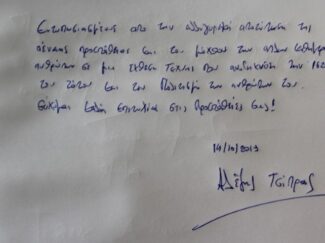 Εντυπωσιασμένος από την αλληγορική αποτύπωση της
προσπάθειας και του μόχθου των απλών καθημερινών
ανθρώπων σε μια έκθεση Τέχνης που αναδεικνύει την
του τόπου και του Πολιτισμό των ανθρώπων του.
Εύχομαι καλή επιτυχία στις προσπάθειές σας!
14/10/2013
Αλέξης Τσίπρας